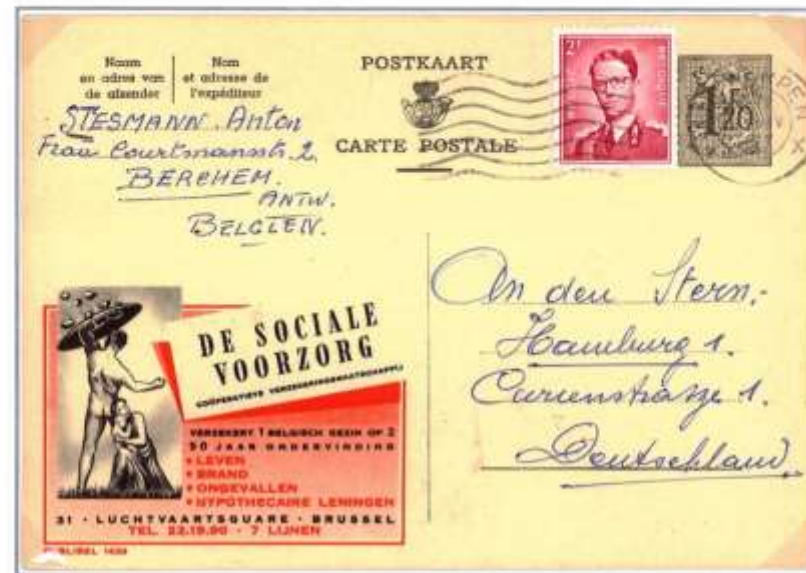 Naam
en adres van
de afzender
Nom
et adresse de
l'expéditeur
POSTKAART
CARTE POSTALE
2F
BELGIQUE
1F20
STESMANN. Anton
Frau Courtmansstr. 2.
BERCHEM.
ANTW.
BELGIEN.
An den Stern.
Hamburg 1.
Curienstrasze 1.
Deutschland
DE SOCIALE
VOORZORG
COÖPERATIEVE VERZEKERINGSMAATSCHAPPIJ
VERZEKERT 1 BELGISCH GEZIN OP 2
50 JAAR ONDERVINDING
• LEVEN
• BRAND
• ONGEVALLEN
• HYPOTHECAIRE LENINGEN
31 - LUCHTVAARTSQUARE - BRUSSEL
TEL. 22.19.90 - 7 LIJNEN